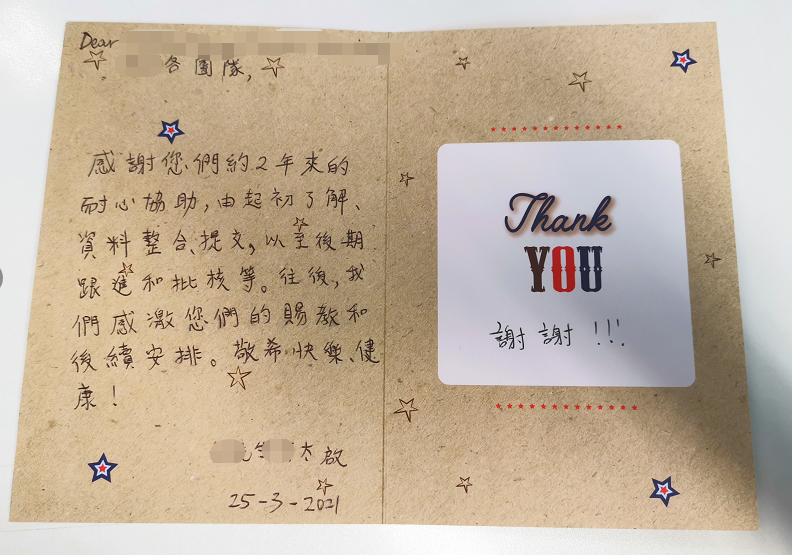 Dear
各團隊,
感謝您們約2年來的
耐心協助,由起初了解、
資料整合、提交,以至後期
跟進和批核等。往後,我
們感激您們的賜教和
後續安排。敬希快樂、健
康!
太 啟
25-3-2021
Thank
YOU
謝謝!!!